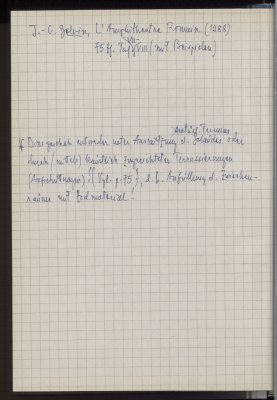 J.-C. Golvin, L'Amphithéatre Romain (1988)
75 ff. Taf. VIII (mit Beispielen)
natürl. Terrains
Dies geschah entweder unter Ausnützung d. Geländes oder
durch (mittels) künstlich zugerichteter Terrassierungen
(Aufschüttungen) (Vgl. p. 75), d. h. Anfüllung d. Zwischen-
räume mit Erdmaterial.